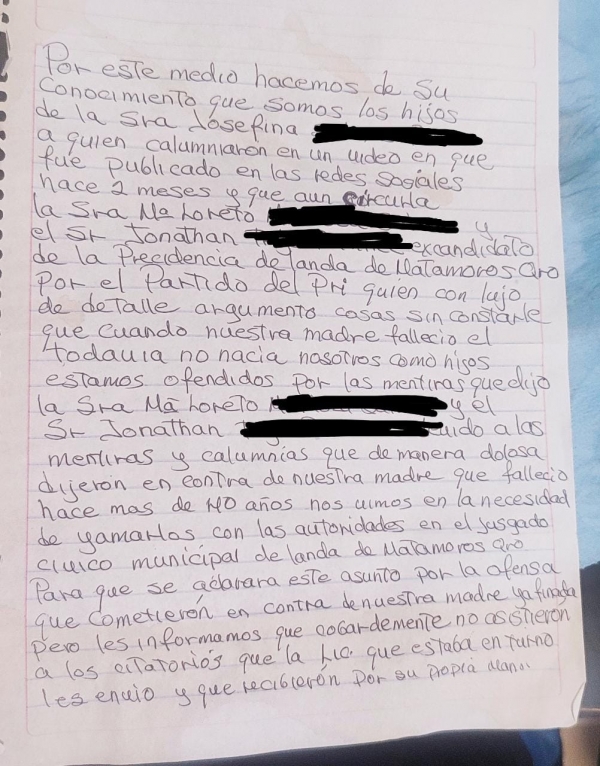 Por este medio hacemos de su
Conocimiento que somos los hijos
de la Sra Josefina
a quien calumniaron en un video en que
fue publicado en las redes sosiales
hace 2 meses y que aun circurla
la Sra Ma Loreto y
el Sr Jonathan excandidato
de la Precidencia de landa de Matamoros Qro
Por el Partido del Pri quien con lujo
de detalle argumento cosas sin constarle
que cuando nuestra madre fallecio el
todauia no nacia nosotros como hijos
estamos ofendidos por las mentiras que dijo
la Sra Ma Loreto y el
Sr Jonathan uido a las
mentiras y calumnias que de manera dolosa
dijeron en contra de nuestra madre que fallecio
hace mas de 40 años nos uimos en la necesidad
de yamarlos con las autoridades en el jusgado
ciuico municipal de landa de Matamoros Qro
Para que se aclarara este asunto por la ofensa
que cometieron en contra de nuestra madre ya finada
Pero les informamos que cobardemente no asistieron
a los citatorios que la Lic. que estaba en turno
les enuio y que recibieron por su propia mano.